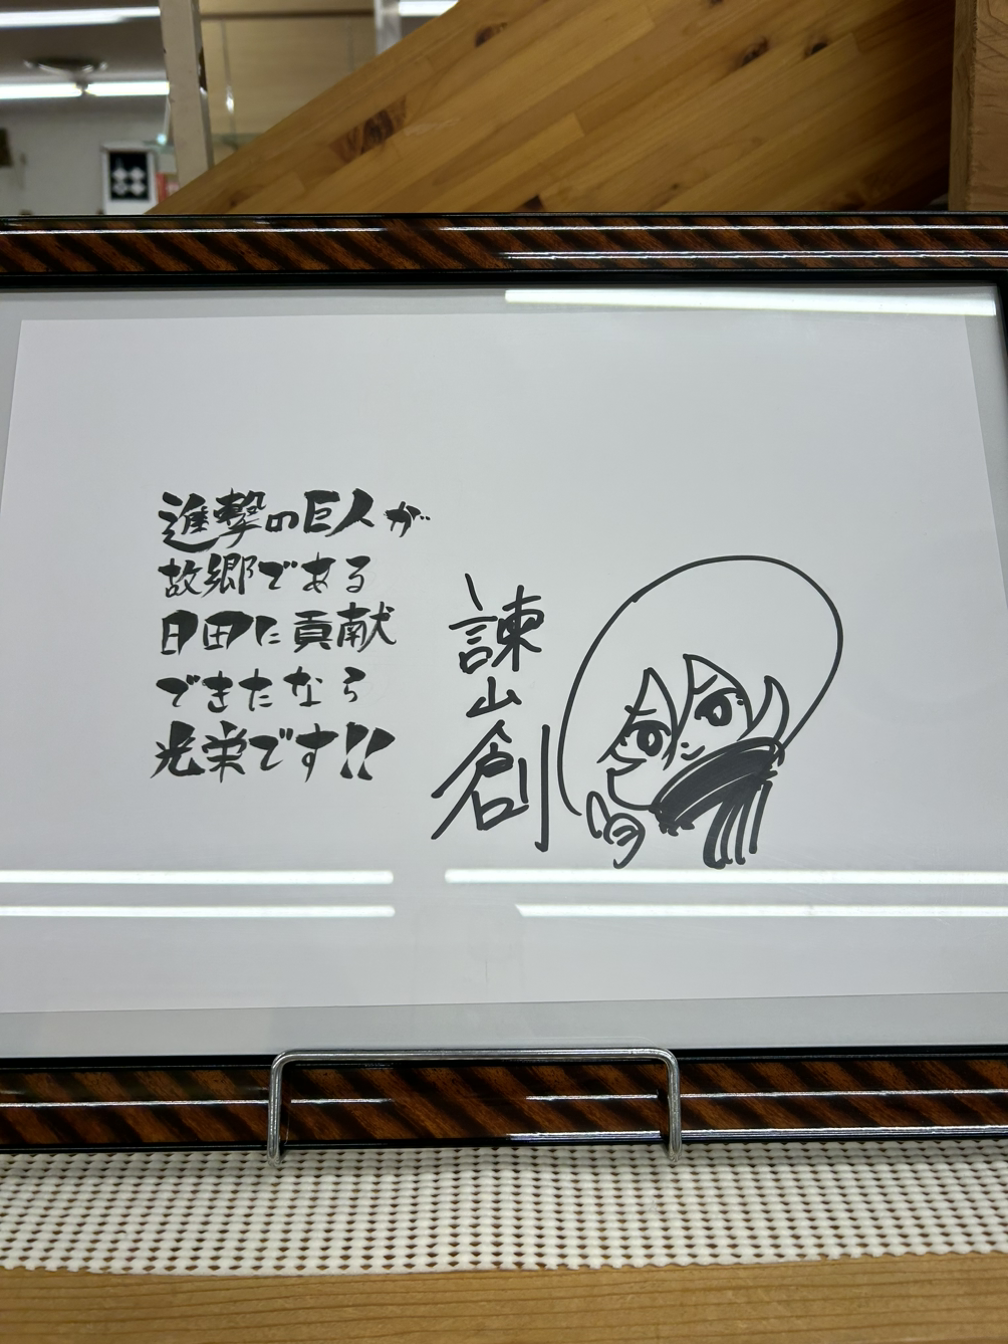 進撃の巨人が
故郷である
日田に貢献
できたなら
光栄です!!
諫山創